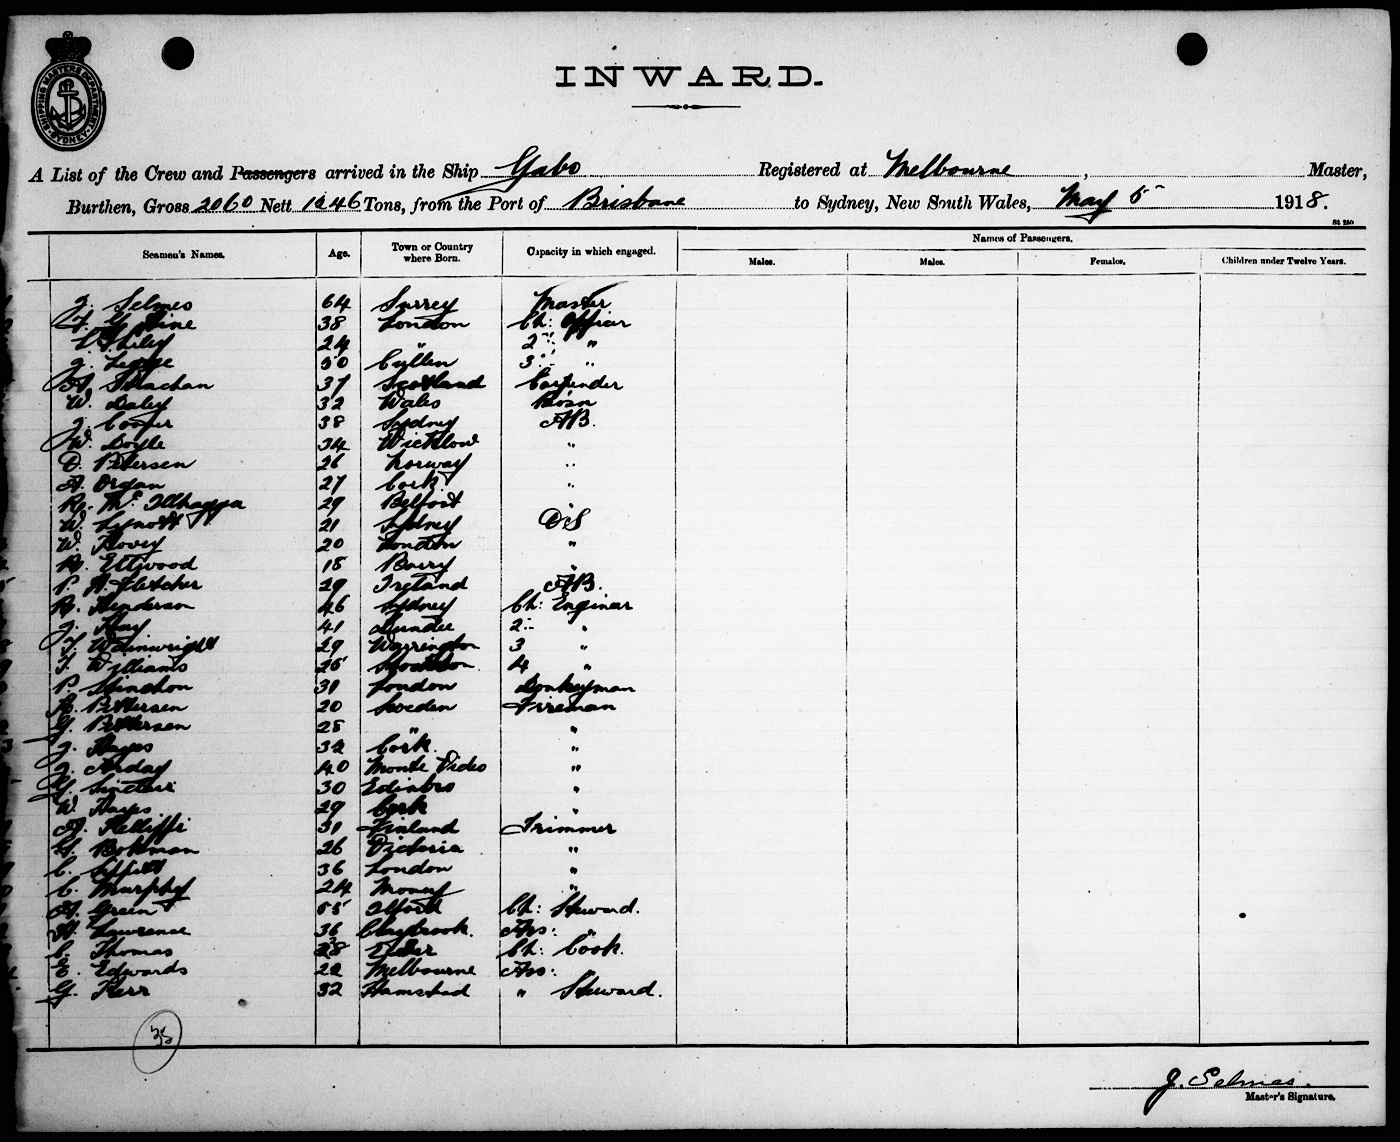 SHIPPING MASTERS DEPARTMENT
SYDNEY
INWARD.
A List of the Crew and Passengers arrived in the Ship Gabo Registered at Melbourne , Master,
Burthen, Gross 2060 Nett 1246 Tons, from the Port of Brisbane to Sydney, New South Wales, May 5 1918.
St 250
Seamen's Names. Age. Town or Country where Born. Capacity in which engaged. Names of Passengers.
Males. Males. Females. Children under Twelve Years.
J. Selmes 64 Surrey Master
38 London Ch: Officer
24 " 2 "
J. 50 Cullen 3 "
A. Strachan 37 Scotland Carpender
W. Daley 32 Wales Bosn
J. Cooper 38 Sydney AB.
W. Doyle 34 Wicklow "
D. Petersen 26 Norway "
A. Organ 27 Cork "
R. Mc Ilhagga 29 Belfast "
W. Lynott 21 Sydney OS
W. Hovey 20 London "
R. Ellwood 18 Barry "
P. H. Fletcher 29 Ireland AB.
R. Henderson 46 Sydney Ch: Enginer
J. Hay 41 Dundee 2 "
T. Wainwright 29 Warrington 3 "
T. Williams 25 Stockton 4 "
P. Hinchon 31 London Donkeyman
H. Pettersen 20 Sweden Fireman
G. Pettersen 28 " "
J. Hayes 32 Cork "
J. Arday 40 Monte Video "
G. Sinclair 30 Edinbro "
W. Hayes 29 Cork "
A. 31 Finland Trimmer
G. Bohman 26 Victoria "
C. 36 London "
C. Murphy 24 "
A. Green 55 Ilford Ch: Steward.
H. Lawrence 36 Claybrook. Ass: "
C. Thomas 38 Ch: Cook.
E. Edwards 22 Melbourne Ass: "
G. Kerr 32 Hamstead " Steward.
35
J. Selmes.
Master's Signature.